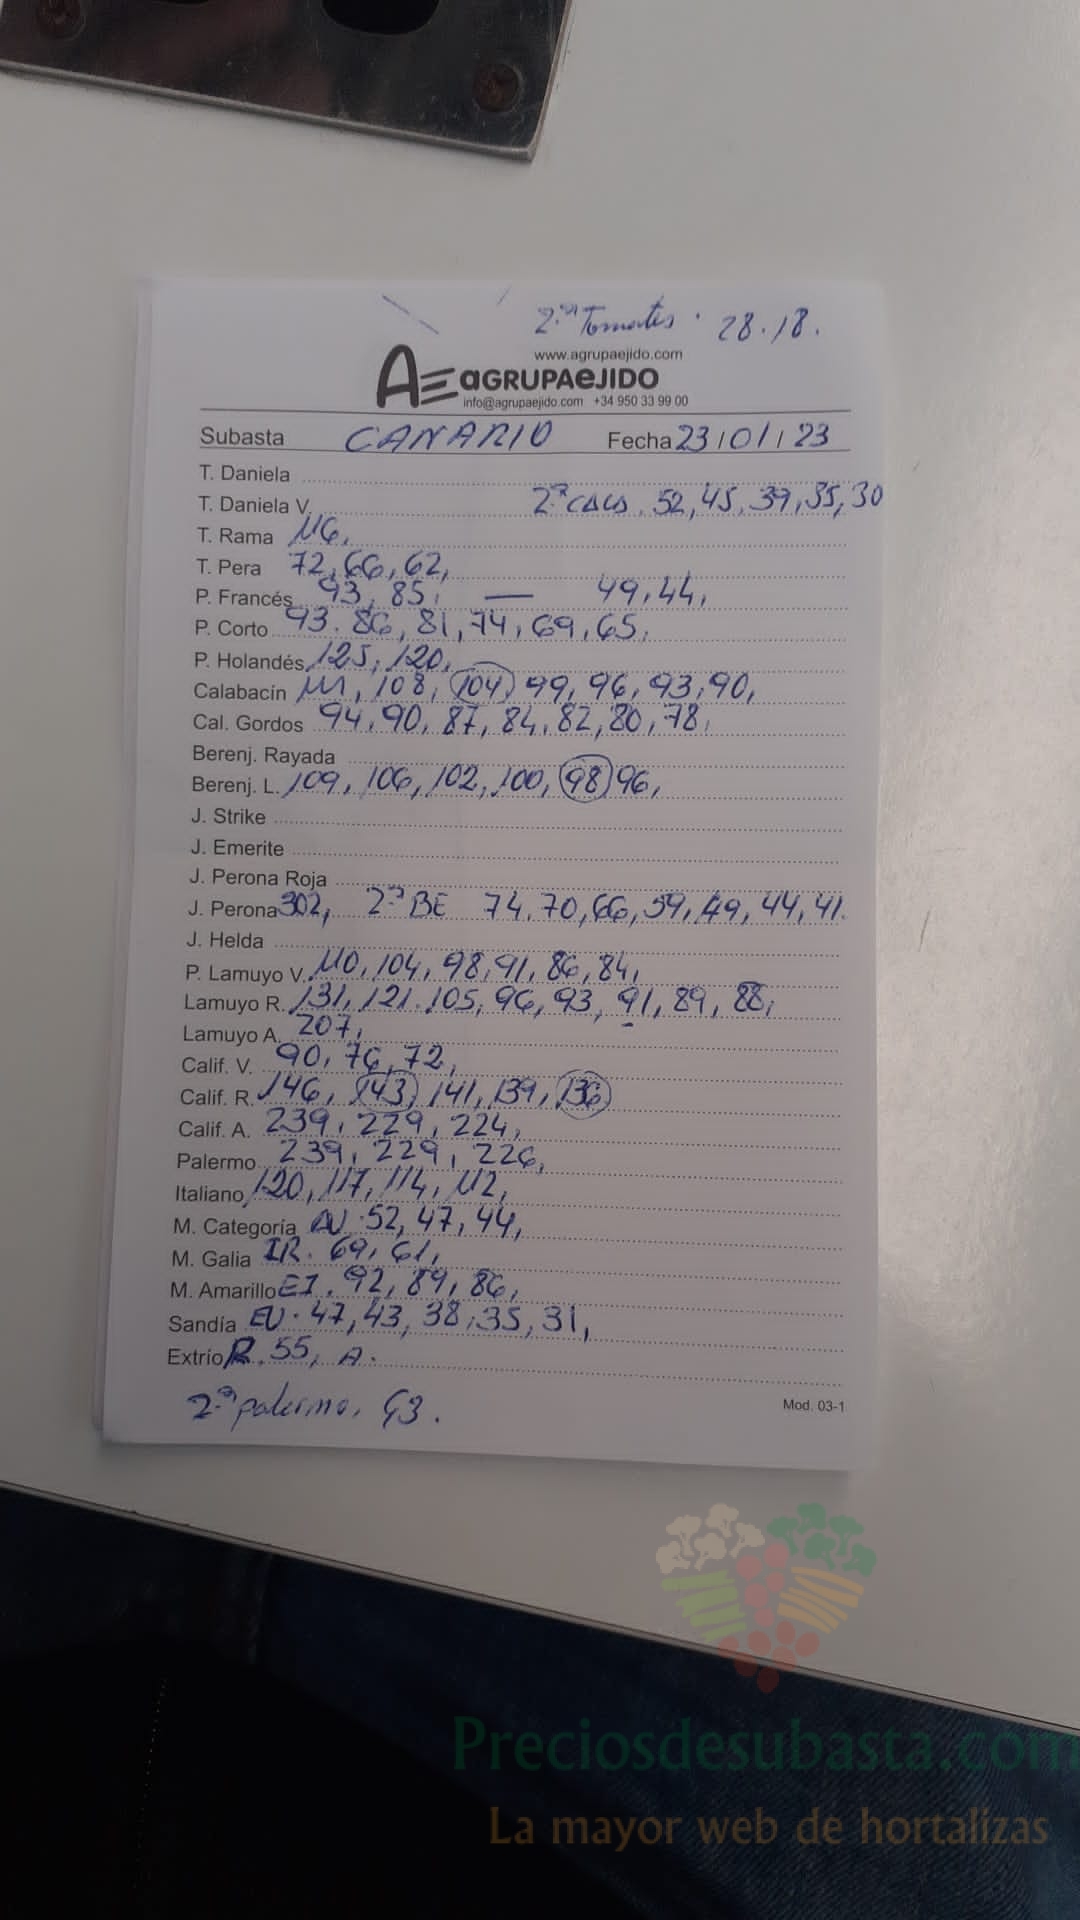 2ª Tomates . 28.18.
www.agrupaejido.com
AE aGRUPAeJIDO
info@agrupaejido.com +34 950 33 99 00
Subasta CANARIO Fecha 23/01/23
T. Daniela
T. Daniela V. 2ª CALA. 52, 45, 39, 35, 30
T. Rama 116,
T. Pera 72, 66, 62,
P. Francés 93, 85, — 49, 44,
P. Corto 93. 86, 81, 74, 69, 65,
P. Holandés 125, 120,
Calabacín 111, 108, 104, 99, 96, 93, 90,
Cal. Gordos 94, 90, 87, 84, 82, 80, 78,
Berenj. Rayada
Berenj. L. 109, 106, 102, 100, 98 96,
J. Strike
J. Emerite
J. Perona Roja
J. Perona 302, 2ª BE 74, 70, 66, 59, 49, 44, 41.
J. Helda
P. Lamuyo V. 110, 104, 98, 91, 86, 84,
Lamuyo R. 131, 121. 105, 96, 93, 91, 89, 88,
Lamuyo A. 207,
Calif. V. 90, 76, 72,
Calif. R. 146, 143, 141, 139, 136
Calif. A. 239, 229, 224,
Palermo 239, 229, 226,
Italiano 120, 117, 114, 112,
M. Categoría 52, 47, 44,
M. Galia IR. 69, 61,
M. Amarillo EI. 92, 89, 86,
Sandía EU. 47, 43, 38, 35, 31,
Extrío R. 55, A.
2ª palermo, 93.
Mod. 03-1
Preciosdesubasta.com
La mayor web de hortalizas